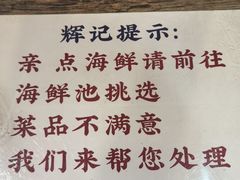 辉记提示:
亲点海鲜请前往
海鲜池挑选
菜品不满意
我们来帮您处理